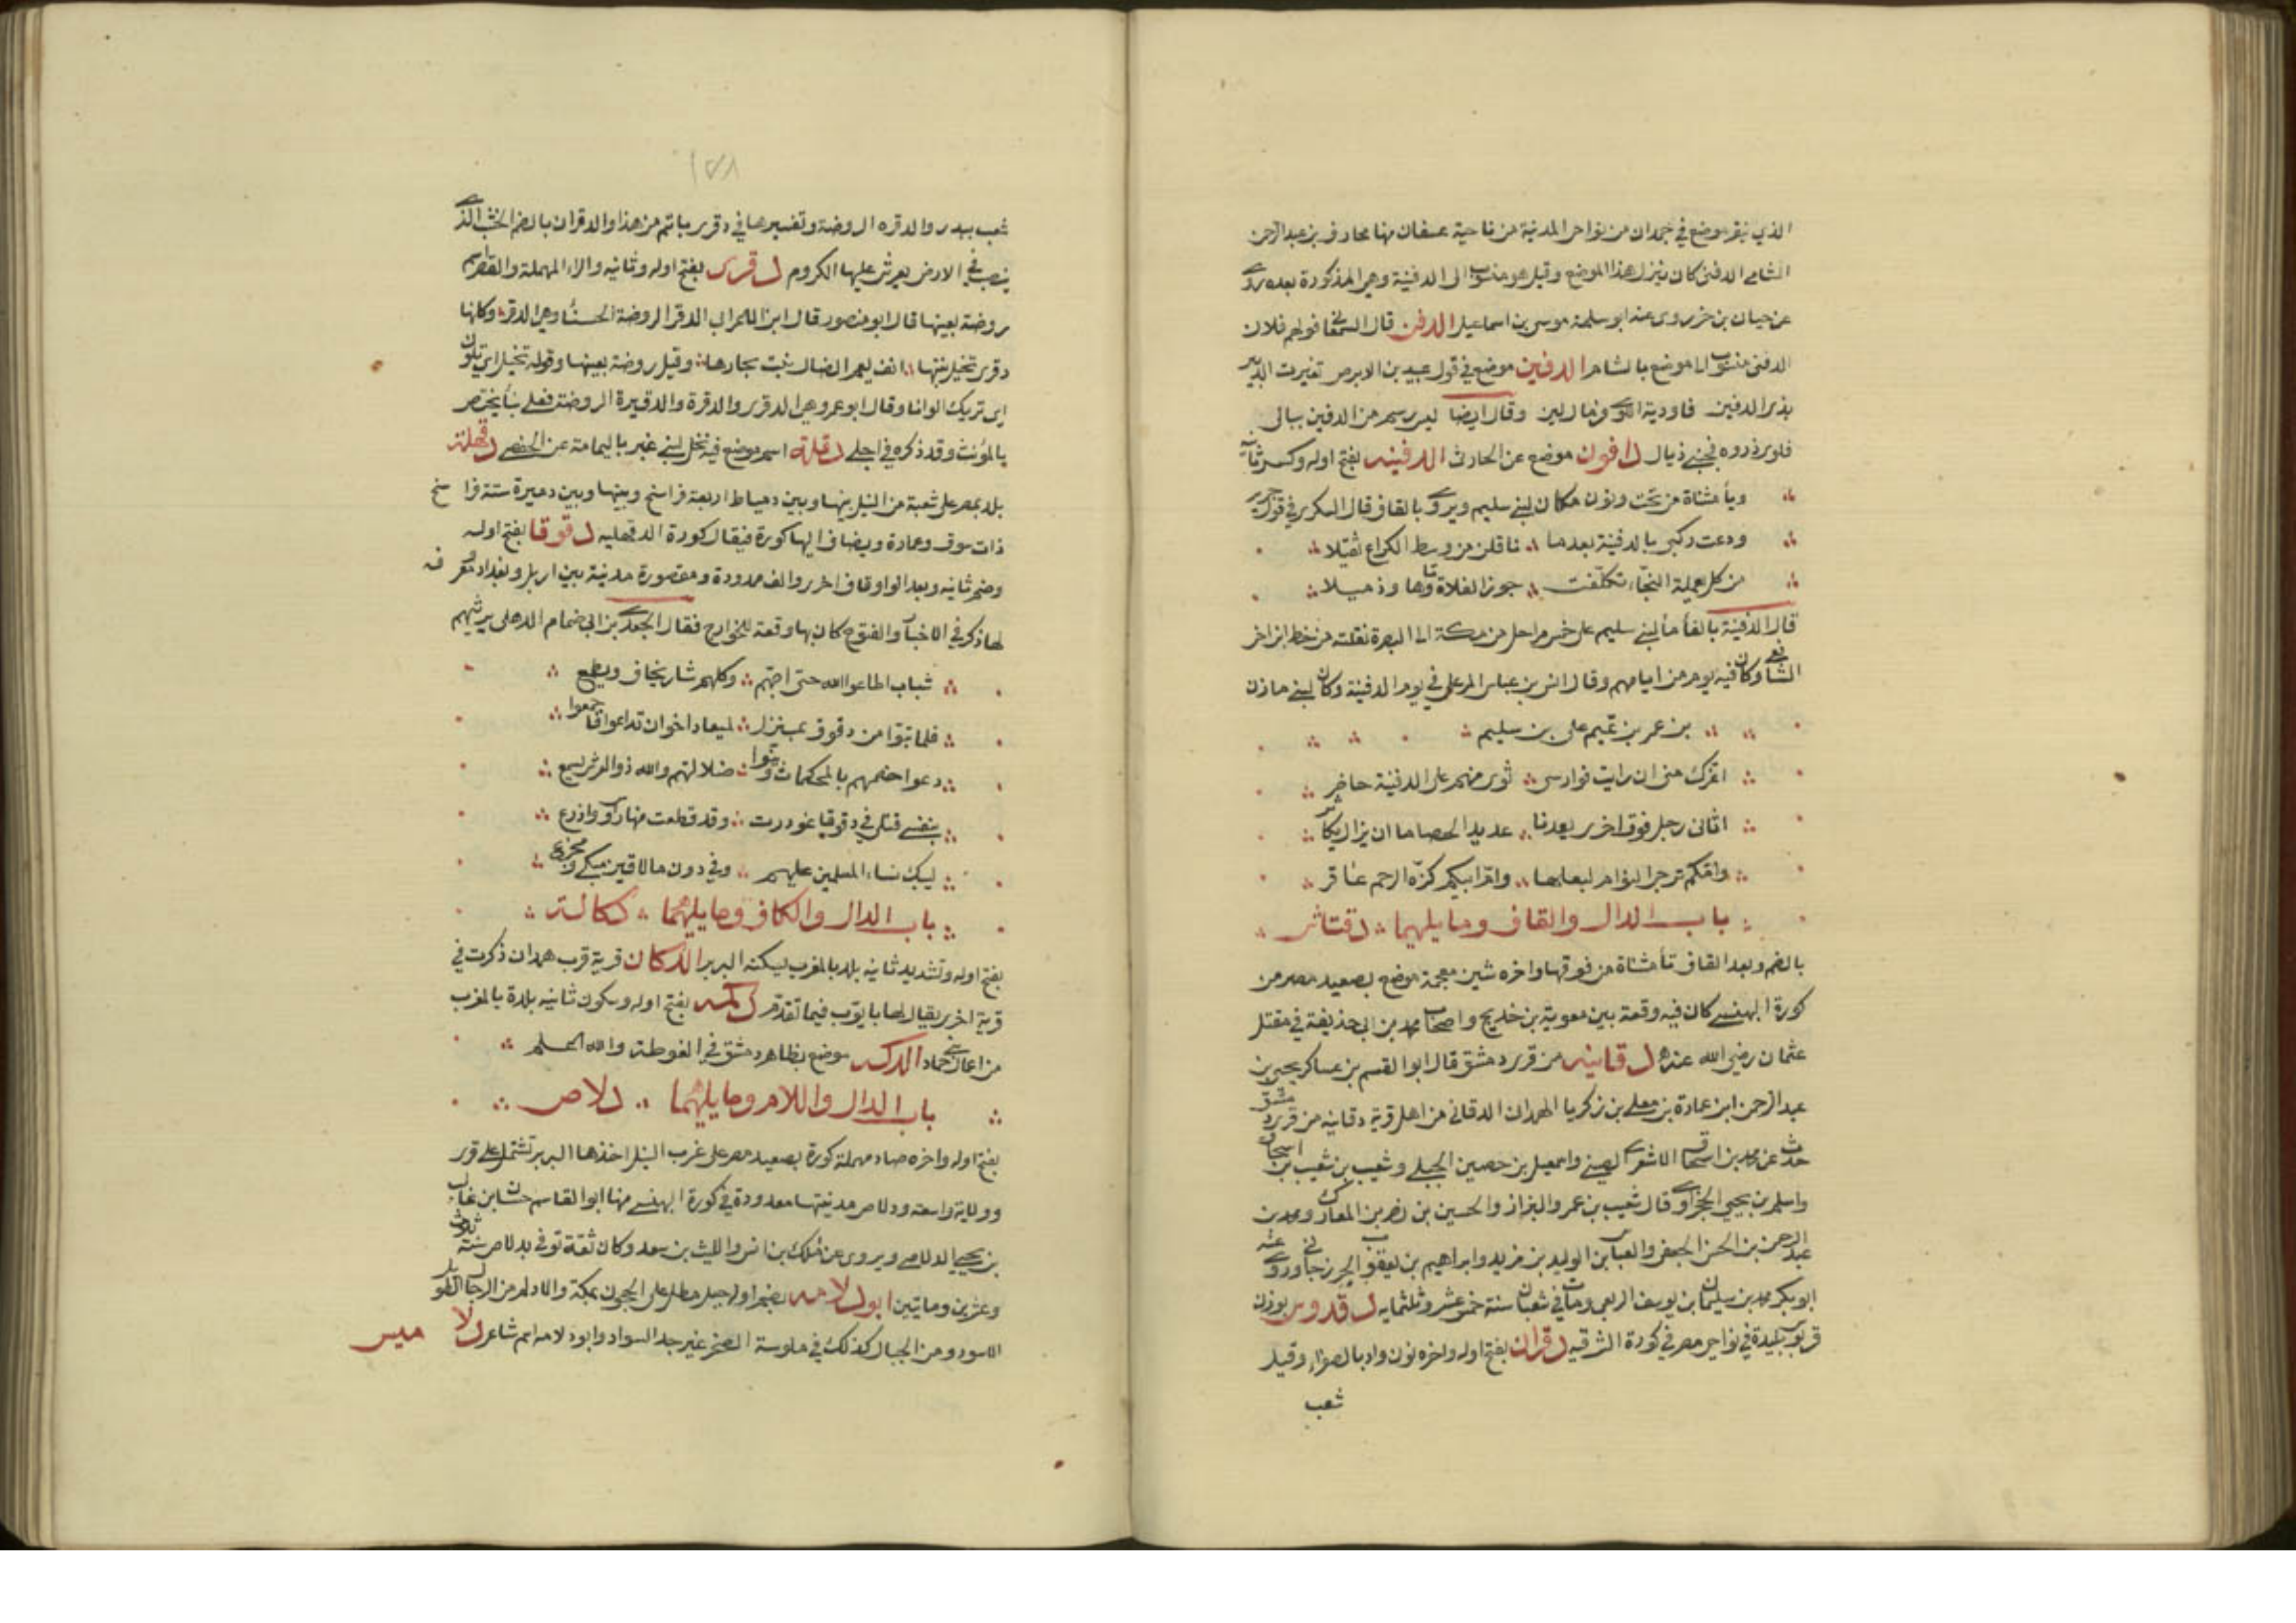 الذي بنقر موضع في جمدان من نواحي المدينة من ناحية عسفان منها محارف بن عبد الرحمن
الشامي الدفني كان ينزل هذا الموضع وقيل هو منسوب الى الدفينة وهي المذكورة بعده روى
عن حيان بن جزي روى عنه ابو سلمة موسى بن اسماعيل الدفن قال السمعاني قولهم فلان
الدفني منسوب الى موضع بالشام الدفين موضع في قول عبيد بن الابرص تغيرت الديار
بذي الدفين فاودية اللوى فرمال لين وقال ايضا ليس رسم من الدفين ببالي
فلوى ذروة فجنبي ذيال دافون موضع عن الحارث الدفينه بفتح اوله وكسر ثانيه
ويا مثناة من تحت ونون مكان لبني سليم ويروى بالقاف قال السكري في قول جرير
ودعت ركبي بالدفينة بعدما ناقلن من وسط الكراع نقيلا
من كل يعملة النجاء تكلفت جوز الفلاة تاوها وذميلا
قال الدفينة بالفا ما لبني سليم على خمس مراحل من مكة الى البصرة نقلته من خط ابن اخي
الشافعي وكان فيه يوم من ايامهم وقال انس بن عباس الرعلي في يوم الدفينة وكان لبني مازن
بن عمر بن تميم على بن سليم
اغرك مني ان رايت فوارسي ثوى منهم على الدفينة حاضر
اتاني رجل فوق اخرى يعدنا عديد الحصا ما ان يزال يكاثر
وامكم ترجي التوام لبعلها وام ابيكم كزة الرحم عاقر
باب الدال والقاف وما يليهما دقتاش
بالضم وبعد القاف تا مثناة من فوقها واخره شين معجمة موضع بصعيد مصر من
كورة البهنسي كان فيه وقعة بين معوية بن خديج واصحاب محمد بن ابي حذيفة في مقتل
عثمان رضي الله عنه دقانيه من قرى دمشق قال ابو القسم بن عساكر يحيى بن
عبد الرحمن ابن عمارة بن معلى بن زكريا الهمداني الدقاني من اهل قرية دقانيه من قرى دمشق
حدث عن محمد بن اسحاق الاشعري الصيني واسمعيل بن حصين الجبلي وشعيب بن شعيب بن اسحاق
واسلم بن يحيى الحجراوي قال شعيب بن عمر والبزاز والحسين بن نصر بن المعارك ومحمد بن
عبد الرحمن بن الحسن الجعفي والعباس بن الوليد بن مزيد وابراهيم بن يعقوب الجوزجاني وروى عنه
ابو بكر محمد بن سليمان بن يوسف الربعي ومات في شعبان سنة خمس عشر وثلثمايه دقدوس بوزن
قربوس بليدة في نواحي مصر في كورة الشرقيه دقران بفتح اوله واخره نون واد بالصفراء وقيل
شعب
١٥٨
شعب ببدر والدقره الروضة وتفسيرها في دقرى باتم من هذا والدقران بالضم الخشب الذي
ينصب في الارض يعرش عليها الكروم دقرى بفتح اوله وثانيه والراء المهملة والقصر اسم
روضة بعينها قال ابو منصور قال ابن الاعرابي الدقر الروضة الحسنا وهي الدقرة وكانها
دقرى تخيل نبتها انف يعم الضال نبت بحارها وقيل روضة بعينها وقوله تخيل اي تلون
اي تريك الوانا وقال ابو عمرو هي الدقرى والدقرة والدقيرة الروضة فعلى بنا يختص
بالمؤنث وقد ذكره في اجلى دقلة اسم موضع فيه نخل لبني غبر باليمامة عن الحفصي دقهلة
بلد بمصر على شعبة من النيل بينها وبين دمياط اربعة فراسخ وبينها وبين دميرة ستة فراسخ
ذات سوق وعمارة ويضاف اليها كورة فيقال كورة الدقهليه دقوقا بفتح اوله
وضم ثانيه وبعد الواو قاف اخرى والف ممدودة ومقصورة مدينة بين اربل وبغداد معروفه
لها ذكر في الاخبار والفتوح كان بها وقعة للخوارج فقال الجعدي بن ابي ضمام الذهلي يرثيهم
شباب اطاعوا الله حتى احبهم وكلهم شار يخاف ويطمع
فلما تبوا من دقوقى بمنزل لميعاد اخوان تداعوا فاجمعوا
دعوا خصمهم بالمحكمات وبينوا ضلالتهم والله ذو العرش يسمع
بنفسي قتلى في دقوقا غودرت وقد قطعت منها رؤوس واذرع
ليبك نساء المسلمين عليهم وفي دون ما لاقين مبكى ومجزع
باب الدال والكاف وما يليهما دكالة
بفتح اوله وتشديد ثانيه بلد بالمغرب يسكنه البربر الدكان قرية قرب همدان ذكرت في
قرية اخرى يقال لها بايوب فيما تقدم دكمه بفتح اوله وسكون ثانيه بلدة بالمغرب
من اعمال بني حماد الدكه موضع بظاهر دمشق في الغوطة والله اعلم
باب الدال واللام وما يليهما دلاص
بفتح اوله واخره صاد مهملة كورة بصعيد مصر على غربي النيل اخذها البربر تشتمل على قرى
وولاية واسعة ودلاص مدينتها معدودة في كورة البهنسي منها ابو القاسم حسان بن غالب
بن نجيح الدلاصي ويروى عن ملك بن انس والليث بن سعد وكان ثقة توفي بدلاص سنة ثلاث
وعشرين ومايتين ابو دلامه بضم اوله جبل مطل على الحجون بمكة والادلم من الرجال الطويل
الاسود ومن الجبال كذلك في ملوسة الصخر غير جد السواد وابو دلامه اسم شاعر دلاميس